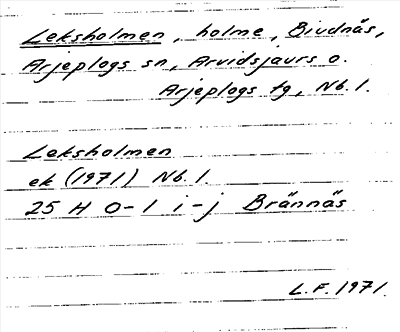 Leksholmen, holme, Biudnäs,
Arjeplogs sn, Arvidsjaurs o.
Arjeplogs tg, Nb. l.
Leksholmen
ek (1971) Nb. l.
25 H 0-1 i-j Brännäs
L.F. 1971.